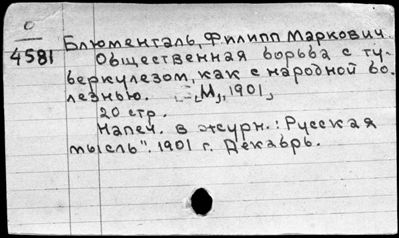 0
4581
Блюменталь, Филипп Маркович.
Общественная борьба с ту-
беркулезом, как с народной бо-
лезнью. [М], 1901,
20 стр.
Напеч. в журн.: "Русская
мысль". 1901 г. Декабрь.